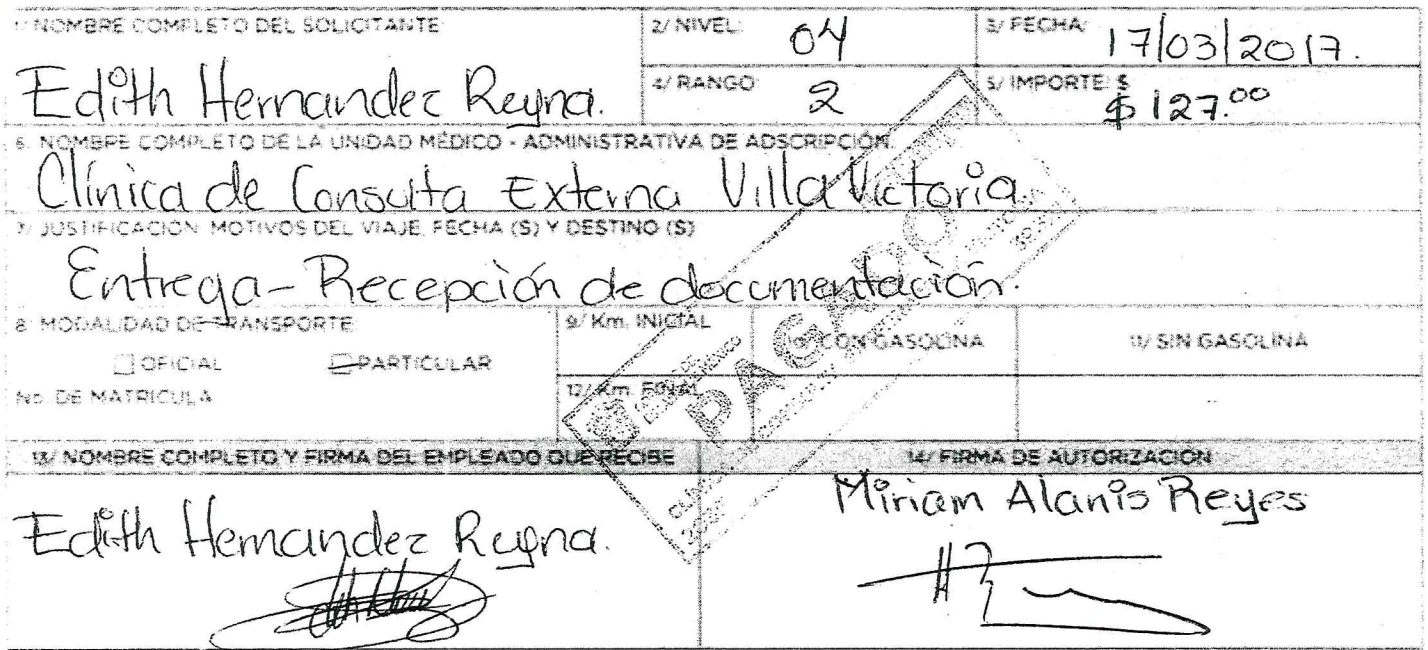 1/ NOMBRE COMPLETO DEL SOLICITANTE:
Edith Hernandez Reyna.
2/ NIVEL: 04
3/ FECHA: 17/03/2017.
4/ RANGO: 2
5/ IMPORTE: $
$127.00
6. NOMBRE COMPLETO DE LA UNIDAD MÉDICO - ADMINISTRATIVA DE ADSCRIPCIÓN:
Clínica de Consulta Externa Villa Victoria.
7/ JUSTIFICACIÓN, MOTIVOS DEL VIAJE, FECHA (S) Y DESTINO (S)
Entrega-Recepción de documentación.
8/ MODALIDAD DE TRANSPORTE:
OFICIAL PARTICULAR
No. DE MATRICULA
9/ Km. INICIAL
10/ CON GASOLINA
11/ SIN GASOLINA
12/ Km. FINAL
PAGADO
13/ NOMBRE COMPLETO Y FIRMA DEL EMPLEADO QUE RECIBE
Edith Hernandez Reyna.
14/ FIRMA DE AUTORIZACIÓN
Miriam Alanis Reyes